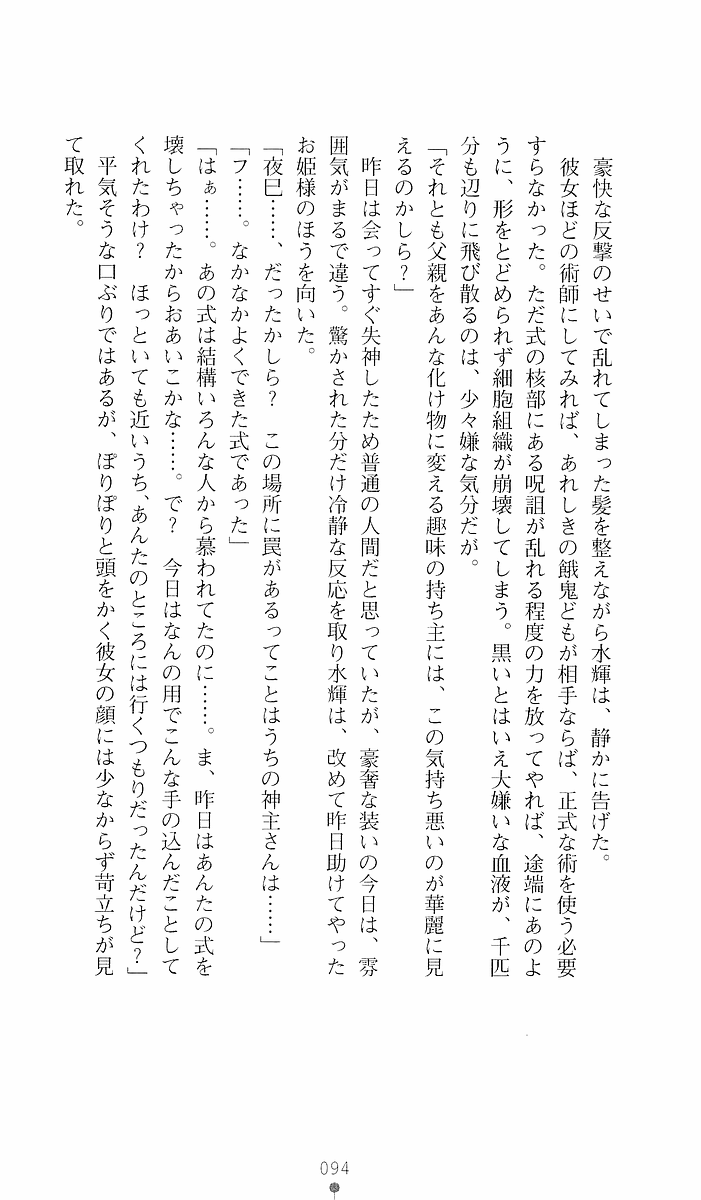 豪快な反撃のせいで乱れてしまった髪を整えながら水輝は、静かに告げた。
彼女ほどの術師にしてみれば、あれしきの餓鬼どもが相手ならば、正式な術を使う必要
すらなかった。ただ式の核部にある呪詛が乱れる程度の力を放ってやれば、途端にあのよ
うに、形をとどめられず細胞組織が崩壊してしまう。黒いとはいえ大嫌いな血液が、千匹
分も辺りに飛び散るのは、少々嫌な気分だが。
「それとも父親をあんな化け物に変える趣味の持ち主には、この気持ち悪いのが華麗に見
えるのかしら？」
昨日は会ってすぐ失神したため普通の人間だと思っていたが、豪奢な装いの今日は、雰
囲気がまるで違う。驚かされた分だけ冷静な反応を取り水輝は、改めて昨日助けてやった
お姫様のほうを向いた。
「夜巳……、だったかしら？　この場所に罠があるってことはうちの神主さんは……」
「フ……。なかなかよくできた式であった」
「はぁ……。あの式は結構いろんな人から慕われてたのに……。ま、昨日はあんたの式を
壊しちゃったからおあいこかな……。で？　今日はなんの用でこんな手の込んだことして
くれたわけ？　ほっといても近いうち、あんたのところには行くつもりだったんだけど？」
平気そうな口ぶりではあるが、ぽりぽりと頭をかく彼女の顔には少なからず苛立ちが見
て取れた。
094